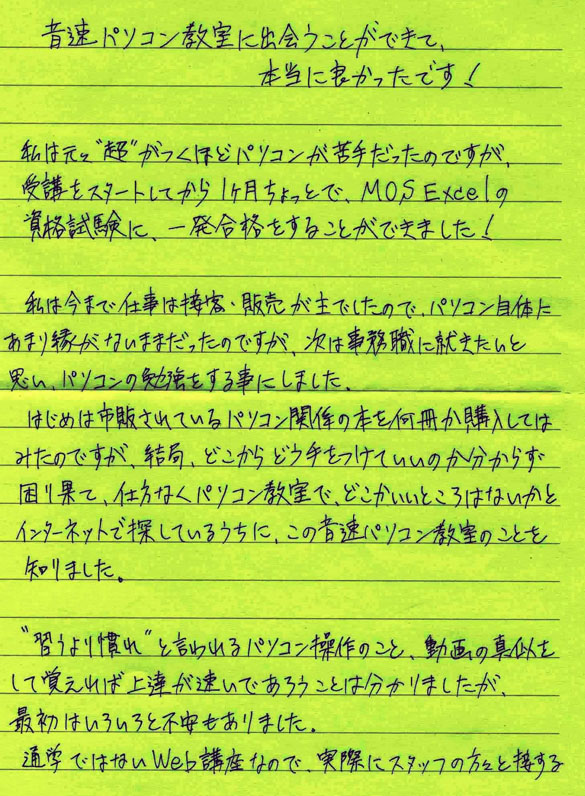 音速パソコン教室に出会うことができて、
本当に良かったです！
私は元々“超”がつくほどパソコンが苦手だったのですが、
受講をスタートしてから1ヶ月ちょっとで、MOS Excelの
資格試験に、一発合格をすることができました！
私は今まで仕事は接客・販売が主でしたので、パソコン自体に
あまり縁がないままだったのですが、次は事務職に就きたいと
思い、パソコンの勉強をする事にしました。
はじめは市販されているパソコン関係の本を何冊か購入しては
みたのですが、結局、どこからどう手をつけていいのか分からず
困り果て、仕方なくパソコン教室で、どこかいいところはないかと
インターネットで探しているうちに、この音速パソコン教室のことを
知りました。
“習うより慣れ”と言われるパソコン操作のこと、動画の真似を
して覚えれば上達が速いであろうことは分かりましたが、
最初はいろいろと不安もありました。
通学ではないWeb講座なので、実際にスタッフの方々と接する